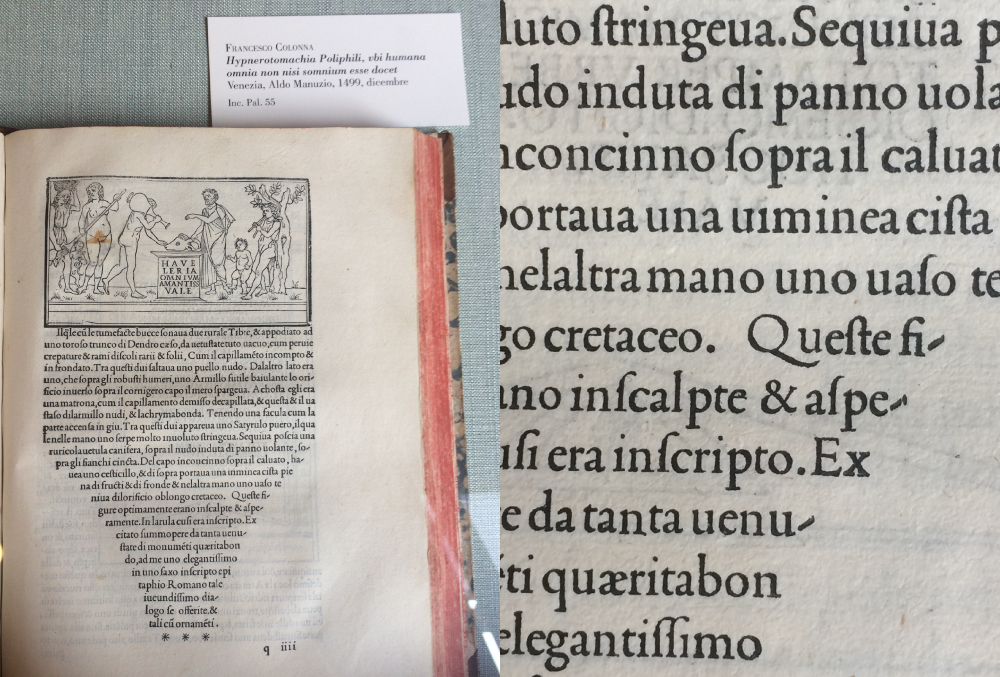 FRANCESCO COLONNA
Hypnerotomachia Poliphili, vbi humana
omnia non nisi somnium esse docet
Venezia, Aldo Manuzio, 1499, dicembre
Inc. Pal. 55
HAVE
LERIA
OMNIVM
AMANTISS
VALE
cū le tumefacte bucce sonaua due rurale Tibie, & appodiato ad
uno toroso trunco di Dendro cæso, da uetustate tuto uacuo, cum peruie
crepature & rami discoli rarii & folii, Cum il capillamēto incompto &
in frondato. Tra questi dui saltaua uno puello nudo. Dalaltro lato era
uno, che sopra gli robusti humeri, uno Armillo futile baiulante lo ori-
ficio inuerso sopra il cornigero capo il mero spargeua. Achosta egli era
una matrona, cum il capillamento demisso decapillata, & questa & il ua
staso dilarmillo nudi, & lachrymabonda. Tenendo una facula cum la
parte accensa in giu. Tra questi dui appareua uno Satyrulo puero, ilqua
le nelle mano uno serpe molto inuoluto stringeua. Sequiua poscia una
ruricola uetula canifera, sopra il nudo induta di panno uolante, so-
pra gli fianchi cincta. Del capo inconcinno sopra il caluato, ha-
uea uno cesticillo, & di sopra portaua una uiminea cista pie
na di fructi & di fronde & nelaltra mano uno uaso te
niua dilorificio oblongo cretaceo. Queste fi-
gure optimamente erano inscalpte & aspe-
ramente. In larula cusi era inscripto. Ex
citato summopere da tanta uenu-
state di monumēti quæritabon
do, ad me uno elegantissimo
in uno saxo inscripto epi
taphio Romano tale
iucundissimo dia-
logo se offerite. &
tali cū ornamēti.
* * *
q iiii
luto stringeua. Sequiua p
udo induta di panno uola
nconcinno sopra il caluat
portaua una uiminea cista
nelaltra mano uno uaso te
go cretaceo. Queste fi-
ano inscalpte & aspe-
usi era inscripto. Ex
e da tanta uenu-
ēti quæritabon
elegantissimo